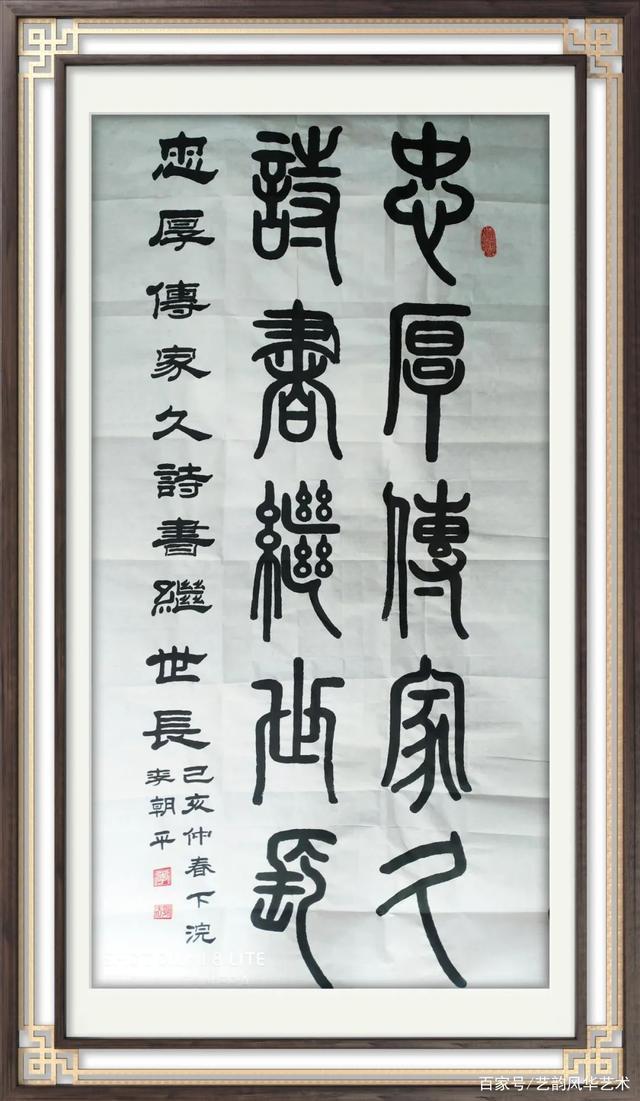 忠厚傳家久
詩書繼世長
忠厚傳家久詩書繼世長
己亥仲春下浣
李朝平
SHOT ON MI 8 LITE
百家号/艺韵风华艺术